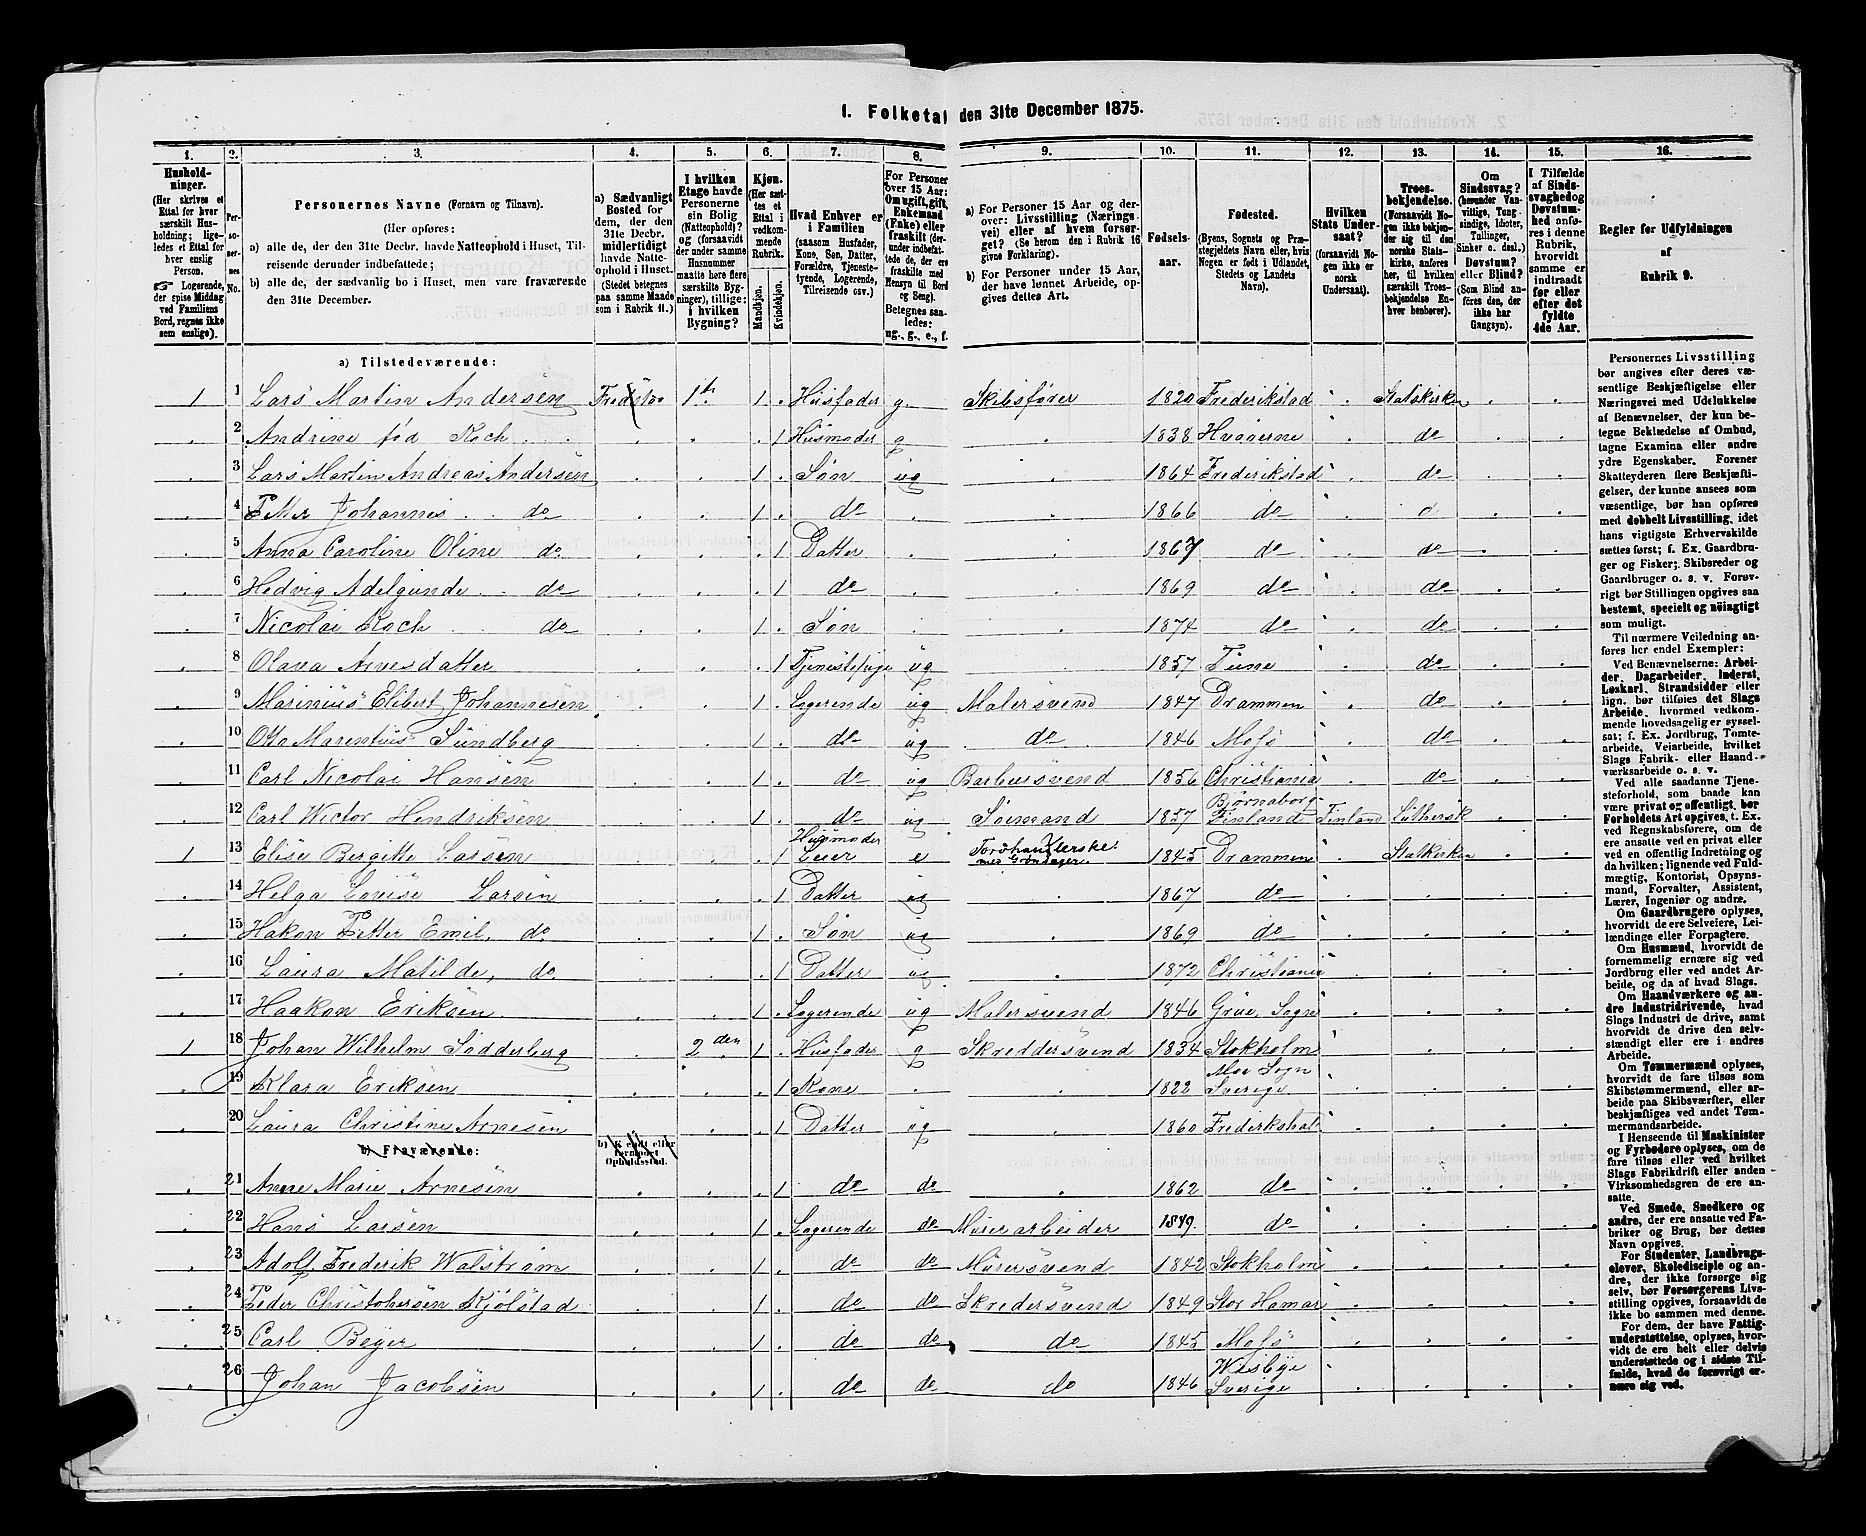 1. Folketal den 31te December 1875.
1. 2. 3. 4. 5. 6. 7. 8. 9. 10. 11. 12. 13. 14. 15. 16.
Husholdninger.
(Her skrives et
Ettal for hver
særskilt Husholdning;
ligeledes
et Ettal for
hver enslig
Person.
Logerende,
der spise Middag
ved Familiens
Bord, regnes ikke
som enslige).
Personernes No.
Personernes Navne (Fornavn og Tilnavn).
(Her opføres:
a) alle de, der den 31te Decbr. havde Natteophold i Huset, Tilreisende
derunder indbefattede;
b) alle de, der sædvanlig bo i Huset, men vare fraværende
den 31te December.
a) Sædvanligt
Bosted for
dem, der den
31te Decbr.
midlertidigt
havde Natteophold
i Huset.
(Stedet betegnes
paa samme Maade
som i Rubrik 11.)
I hvilken
Etage havde
Personerne
sin Bolig
(Natteophold)?
og (forsaavidt
der under samme
Husnummer
maatte høre flere
særskilte Bygninger),
tillige:
i hvilken
Bygning?
Kjøn.
(Her sættes
et Ettal i
vedkommende
Rubrik.
Mandkjøn.
Kvindekjøn.
Hvad Enhver er
i Familien
(saasom Husfader,
Kone, Søn, Datter,
Forældre, Tjenestetyende,
Logerende,
Tilreisende osv.)
For Personer
over 15 Aar:
Om ugift, gift,
Enkemand
(Enke) eller
fraskilt (derunder
indbefattede,
de, ere
fraskilte med
Hensyn til Bord
og Seng).
Betegnes saaledes:
ug., g., e., f.
a) For Personer 15 Aar og derover:
Livsstilling (Næringsvei)
eller af hvem forsørget?
(Se herom den i Rubrik 16
givne Forklaring).
b) For Personer under 15 Aar,
der have lønnet Arbeide, opgives
dettes Art.
Fødselsaar.
Fødested.
(Byens, Sognets og Præstegjeldets
Navn eller, hvis
Nogen er født i Udlandet,
Stedets og Landets
Navn).
Hvilken
Stats Undersaat?
(forsaavidt Nogen
ikke er
norsk
Undersaat).
Troesbekjendelse.
(Forsaavidt Nogen
ikke bekjender
sig til den
norske Statskirke,
anføres
her, til hvilken
særskilt Troesbekjendelse
Enhver
henhører).
Om
Sindssvag?
(herunder Vanvittige,
Tungsindige,
Idioter,
Tullinger,
Sinker o. desl.)
Døvstum?
eller Blind?
(Som Blind anføres
den, der
ikke har
Gangsyn).
I Tilfælde
af Sindssvaghed
og
Døvstumhed
anføres
i denne
Rubrik,
hvorvidt
samme er
indtraadt
før eller
efter det
fyldte
4de Aar.
Regler for Udfyldningen
af
Rubrik 9.
a) Tilstedeværende:
1 1 Lars Martin Andersen Fredstad 1ste 1 . Husfader g Skibsfører 1820 Frederikstad . Statskirken . .
2 Andrine fød Koch . . . 1 Husmoder g . 1838 Hvaøerne . do . .
3 Lars Martin Andreas Andersen . . 1 . Søn ug . 1864 Frederikstad . do . .
4 Johannis . . do . . 1 . do . . 1866 do . . .
5 Anna Caroline Oline do . . . 1 Datter . . 1867 do . do . .
6 Hedvig Adelgunde . . do . . . 1 do . . 1869 do . do . .
7 Nicolai Koch . do . . 1 . Søn . . 1874 do . do . .
8 Olava Arnesdatter . . . 1 Tjenestepige ug . 1857 Tune . do . .
9 Marinius Elibert Johannesen . . 1 . Logerende ug Malersvend 1847 Drammen . do . .
10 Otto Marentius Sundberg . . 1 . do ug do 1846 Moss . do . .
11 Carl Nicolai Hansen . . 1 . do ug Barbersvend 1856 Christiania . do . .
12 Carl Wictor Hendriksen . . 1 . do ug Sømand 1857 Bjørnaborg Finland Finland Luthersk . .
1 13 Elise Bergitte Larsen . . . 1 Husmoder Leier e 1845 Drammen . Statkirken . .
14 Helga Lovise Larsen . . . 1 Datter ug . 1867 do . . . .
15 Hakon Petter Emil, do . . 1 . Søn ug . 1869 do . . . .
16 Laura Matilde, do . . . 1 Datter ug . 1872 Christiania . . . .
17 Haakon Eriksen . . 1 . Logerende ug Malersvend 1846 Grue, Sogn . . . .
1 18 Johan Wilhelm Södderberg . 2den 1 . Husfader g Skreddersvend 1834 Stokholm . . . .
19 Klara Eriksen . . . 1 Kone . . 1822 Moe Sogn Sverige . . . .
20 Laura Christine Arnesen . . . 1 Datter ug . 1860 Frederikstad . . . .
b) Fraværende:
b) Kjendt eller
formodet
Opholdssted.
21 Anne Marie Arnesen . . . 1 do do . 1862 do . . . .
22 Hans Larsen . . 1 . Logerende do Murerarbeider 1849 do . . . .
23 Adolf Frederik Walstrøm . . 1 . do do Murersvend 1842 Stokholm . . . .
24 Peder Christofersen Kjölstad . . 1 . do do Skredersvend 1849 Stor Hamar . . . .
25 Carl Beyer . . 1 . do do do 1845 Moss . . . .
26 Johan Jacobsen . . 1 . do do do 1846 Wisbye Sverige . . . .
Personernes Livsstilling
bør angives efter deres væsentlige
Beskjæftigelse eller
Næringsvei med Udelukkelse
af Benævnelser, der kun betegne
Beklædelse af Ombud,
tagne Examina eller andre
ydre Egenskaber. Forener
Skatteyderen flere Beskjæftigelser,
der kunne ansees som
væsentlige, bør han opføres
med dobbelt Livsstilling, idet
hans vigtigste Erhvervskilde
sættes først; f. Ex. Gaardbruger
og Fisker; Skibsreder og
Gaardbruger o. s. v. Forøvrigt
bør Stillingen opgives saa
bestemt, specielt og nøiagtigt
som muligt.
Til nærmere Veiledning anføres
her endel Exempler:
Ved Benævnelserne: Arbeider,
Dagarbeider, Inderst,
Løskarl, Strandsidder eller
lign. bør tilføies det Slags
Arbeide, hvormed vedkommende
hovedsagelig er sysselsat;
f. Ex. Jordbrug, Tømtearbeide,
Veiarbeide, hvilket
Slags Fabrik- eller Haandværksarbeide
o. s. v.
Ved alle saadanne Tjenesteforhold,
som baade kan
være privat og offentligt, bør
Forholdets Art opgives, t. Ex.
ved Regnskabsførere, om de
ere ansatte ved en privat eller
ved en offentlig Indretning og
da hvilken; lignende ved Fuldmægtig,
Kontorist, Opsynsmand,
Forvalter, Assistent,
Lærer, Ingeniør og andre.
Om Gaardbrugere oplyses,
hvorvidt de ere Selveiere, Leilændinge
eller Forpagtere.
Om Husmænd, hvorvidt de
fornemmelig ernære sig ved
Jordbrug eller ved andet Arbeide,
og da af hvad Slags.
Om Haandværkere og andre
Industridrivende, hvad
Slags Industri de drive, samt
hvorvidt de drive den selvstændigt
eller ere i andres
Arbeide.
Om Tømmermænd oplyses,
hvorvidt de fare tilsøs som
Skibstømmermænd, eller arbeide
paa Skibsværfter, eller
beskjæftiges ved andet Tømmermandsarbeide.
I Henseende til Maskinister
og Fyrbødere oplyses, om de
fare tilsøs eller ved hvilket
Slags Fabrikdrift eller anden
Virksomhedsgren de ere ansatte.
Ved Smede, Snedkere og
andre, der ere ansatte ved Fabriker
og Brug, bør dettes
Navn opgives.
For Studenter, Landbrugselever,
Skoledisciple og andre,
der ikke forsørge sig
selv, bør Forsørgerens Livsstilling
opgives, forsaavidt de
ikke bo sammen med denne.
For dem, der have Fattigunderstøttelse,
oplyses, hvorvidt
de ere helt eller delvis
understøttede og i sidste Tilfælde,
hvad de forøvrigt ernære
sig ved.